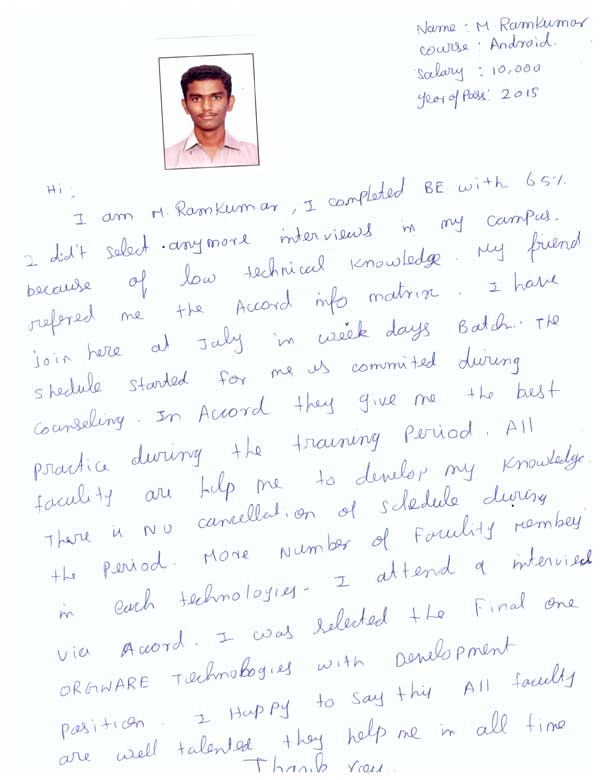 Name : M. Ramkumar
Course : Android.
Salary : 10,000
Year of Pass : 2015
Hi ,
I am M. Ramkumar, I completed BE with 65%.
I did't select anymore interviews in my campus.
because of low technical knowledge. My friend
refered me the Accord info matrix. I have
join here at July in week days Batch. The
shedule started for me is commited during
Counseling. In Accord they give me the best
practice during the training Period. All
faculity are help me to develop my knowledge.
There is No cancellation of schedule during
the Period. More Number of Faculity Member
in each technologies. I attend 9 interviews
via Accord. I was selected the Final one
ORGWARE Technologies with Development
Position. I Happy to say this All faculty
are well talented they help me in all time
Thank you.